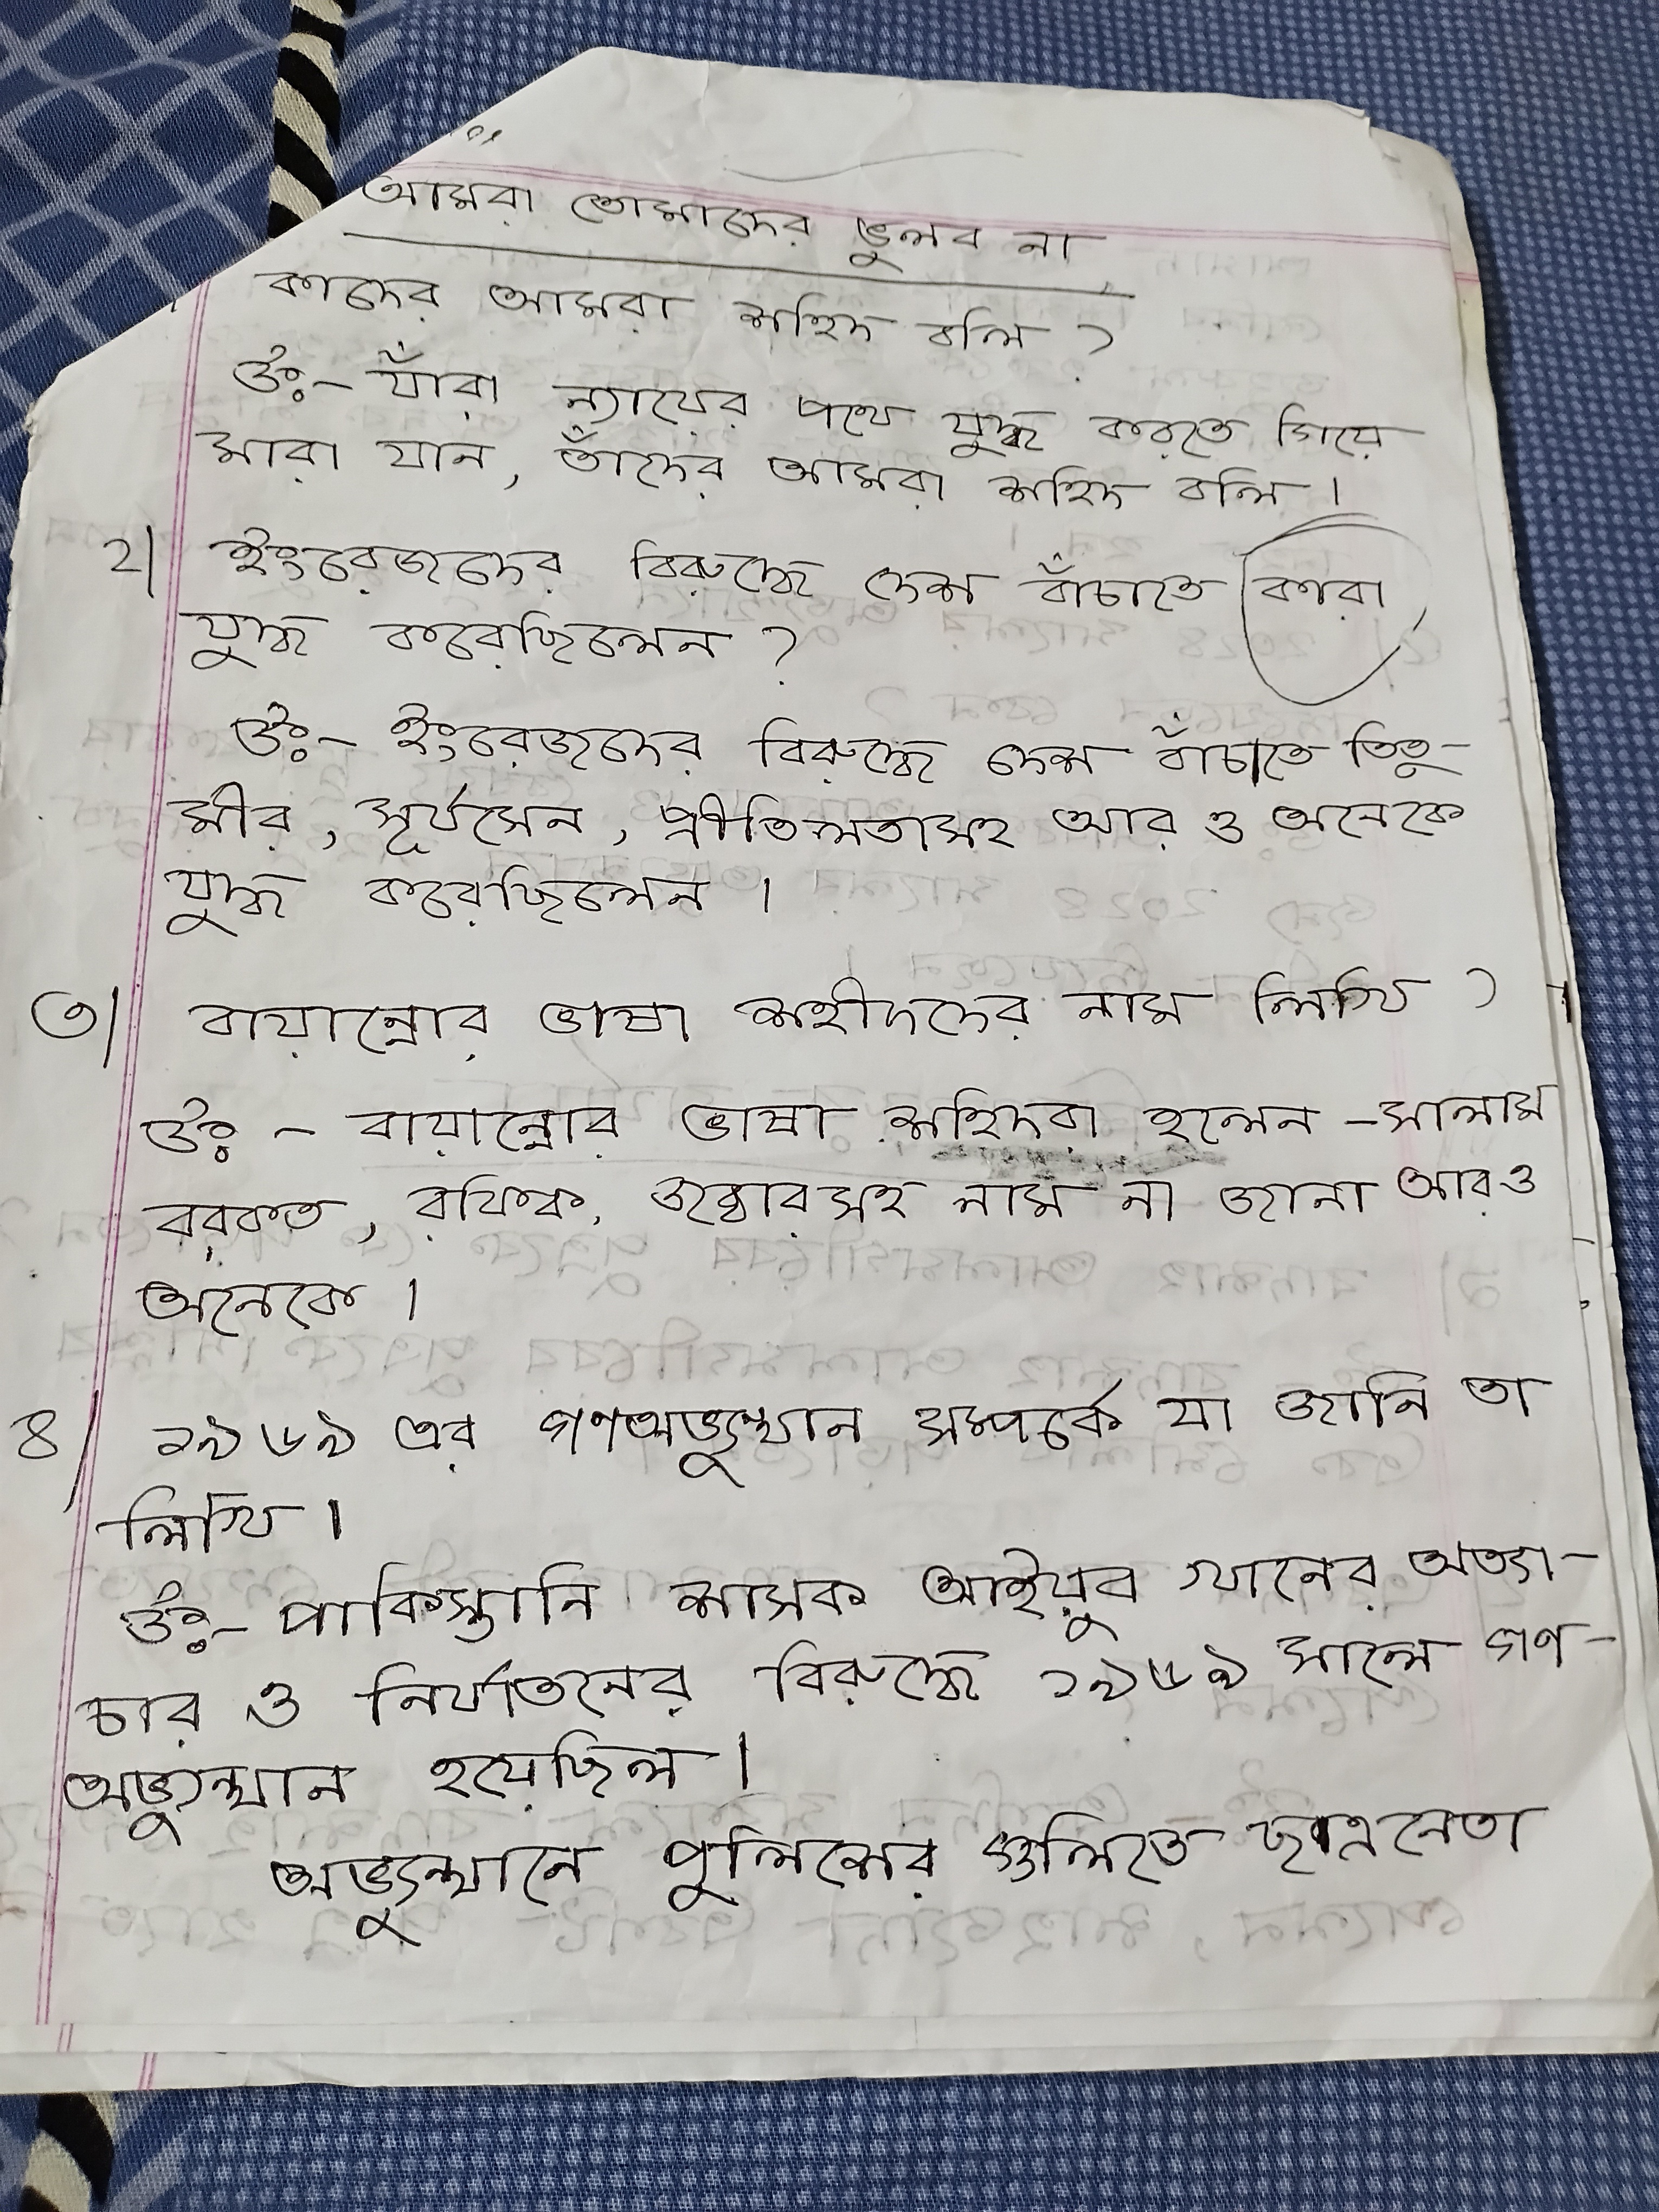 আমরা তোমাদের ভুলব না
কাদের আমরা শহিদ বলি ?
উঃ- যাঁরা ন্যায়ের পথে যুদ্ধ করতে গিয়ে
মারা যান, তাঁদের আমরা শহিদ বলি ।
২| ইংরেজদের বিরুদ্ধে দেশ বাঁচাতে কারা
যুদ্ধ করেছিলেন ?
উঃ- ইংরেজদের বিরুদ্ধে দেশ বাঁচাতে তিতু-
মীর, সূর্যসেন, প্রীতিলতাসহ আর ও অনেকে
যুদ্ধ করেছিলেন ।
৩| বায়ান্নোর ভাষা শহীদদের নাম লিখি ?
উঃ - বায়ান্নোর ভাষা শহিদরা হলেন - সালাম
বরকত, রফিক, জব্বারসহ নাম না জানা আরও
অনেকে ।
৪| ১৯৬৯ এর গণঅভ্যুত্থান সম্পর্কে যা জানি তা
লিখি ।
উঃ- পাকিস্তানি শাসক আইয়ুব খানের অত্যা-
চার ও নির্যাতনের বিরুদ্ধে ১৯৬৯ সালে গণ-
অভ্যুত্থান হয়েছিল ।
অভ্যুত্থানে পুলিশের গুলিতে ছাত্রনেতা